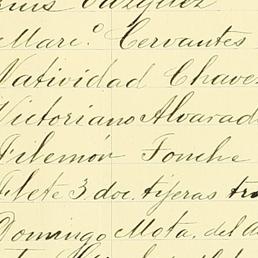 Vazquez
Marc.º Cervantes
Natividad Chavez
Victoriano Alvarad
Filemón Fonche
Flete 3 doc. tijeras tra
Domingo Mota. del